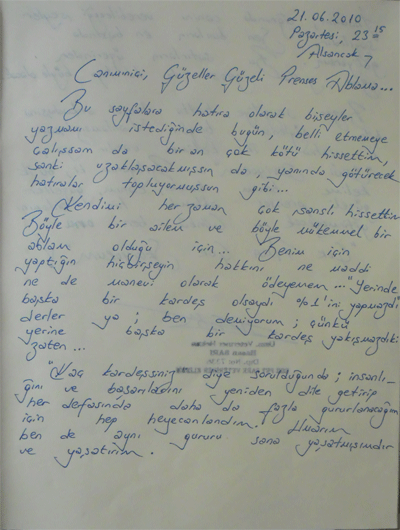 21.06.2010
Pazartesi, 23 15
Alsancak
Canımıniçi, Güzeller Güzeli Prenses Ablama...
Bu sayfalara hatıra olarak bişeyler
yazmamı istediğinde bugün, belli etmemeye
çalışsam da bir an çok kötü hissettim,
sanki uzaklaşacakmışsın da, yanında götürecek
hatıralar topluyormuşsun gibi...
Kendimi her zaman çok şanslı hissettim
Böyle bir ailem ve böyle mükemmel bir
ablam olduğu için... Benim için
yaptığın hiçbirşeyin hakkını ne maddi
ne de manevi olarak ödeyemem... "Yerinde
başka bir kardeş olsaydı %1'ini yapmazdı"
derler ya; ben demiyorum; çünkü
yerine başka bir kardeş yakışmazdı
zaten...
"Kaç kardeşsiniz" diye sorulduğunda; insanlı-
ğını ve başarılarını yeniden dile getirip
her defasında daha da fazla gururlanacağım
için hep heyecanlandım. Umarım
ben de aynı gururu sana yaşatmışımdır
ve yaşatırım.